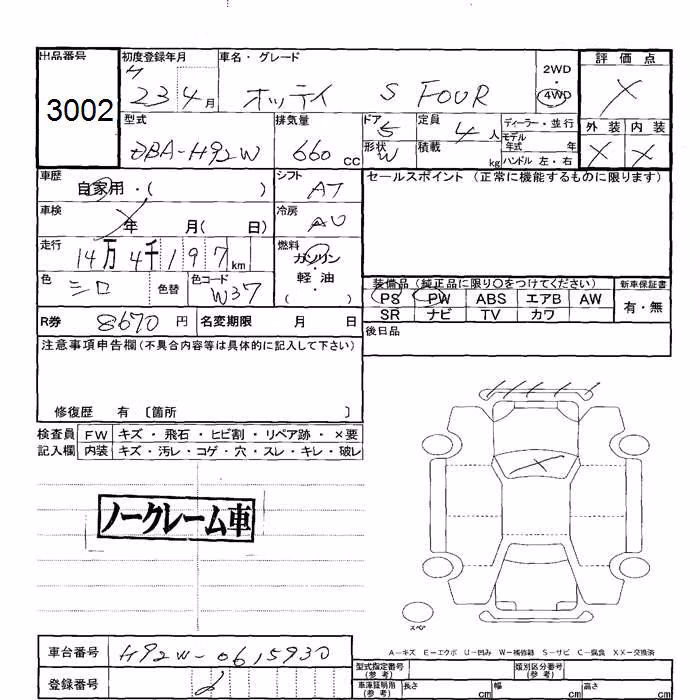 出品番号 初度登録年月 車名・グレード 評価点
3002 H 23 4月 オッティ S FOUR 2WD 4WD X
型式 排気量 ドア 定員 ディーラー・並行 外装 内装
DBA-H92W 660cc 5 4人 モデル年式 年 X X
形状 W 積載 kg ハンドル 左・右
車歴 自家用・( ) シフト AT セールスポイント (正常に機能するものに限ります)
車検 年 月( 日) 冷房
走行 14万4千197km 燃料 ガソリン
色 シロ 色替 色コード W37 軽・油
( )
装備品(純正品に限り○をつけてください) 新車保証書
PS PW ABS エアB AW 有・無
SR ナビ TV カワ
R券 8670円 名変期限 月 日 後日品
注意事項申告欄(不具合内容等は具体的に記入して下さい)
修復歴 有 〔箇所 〕
検査員 FW キズ・飛石・ヒビ割・リペア跡・×要
記入欄 内装 キズ・汚レ・コゲ・穴・スレ・キレ・破レ
ノークレーム車
スペア
A－キズ E－エクボ U－凹み W－補修跡 S－サビ C－腐食 XX－交換済
車台番号 H92W-0615930
登録番号
型式指定番号(参考) 類別区分番号(参考)
車庫証明諸(参考) 長さ cm 幅 cm 高さ cm